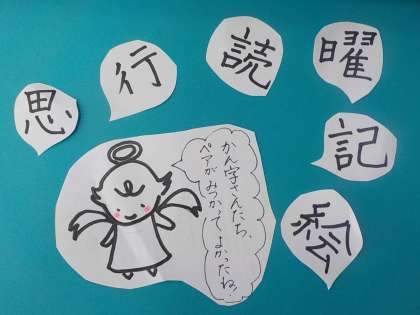 思
行
読
曜
記
絵
かん字さんたち、
ペアがみつかってよかったね!